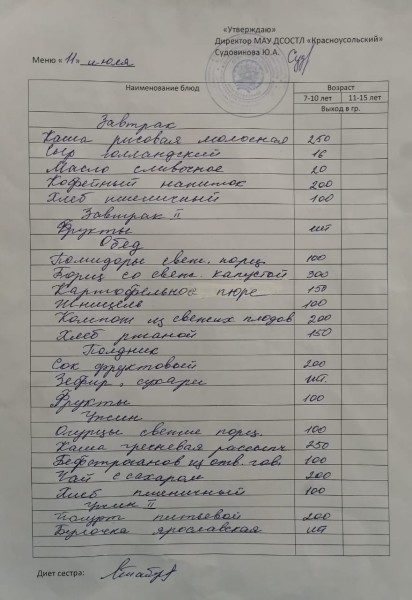 «Утверждаю»
Директор МАУ ДСОСТЛ «Красноусольский»
Судовикова Ю.А.
Меню « 11 » июля
Наименование блюд Возраст
7-10 лет 11-15 лет
Выход в гр.
Завтрак
Каша рисовая молочная 250
Сыр голландский 16
Масло сливочное 20
Кофейный напиток 200
Хлеб пшеничный 100
Завтрак II
Фрукты шт
Обед
Помидоры свеж. порц. 100
Борщ со свеж. капустой 300
Картофельное пюре 150
Шницель 100
Компот из свежих плодов 200
Хлеб ржаной 150
Полдник
Сок фруктовый 200
Зефир, сухари шт.
Фрукты 100
Ужин
Огурцы свежие порц. 100
Каша гречневая рассып 250
Бефстроганов из отв. гов. 100
Чай с сахаром 200
Хлеб пшеничный 100
Ужин II
Йогурт питьевой 200
Булочка ярославская шт
Диет сестра: